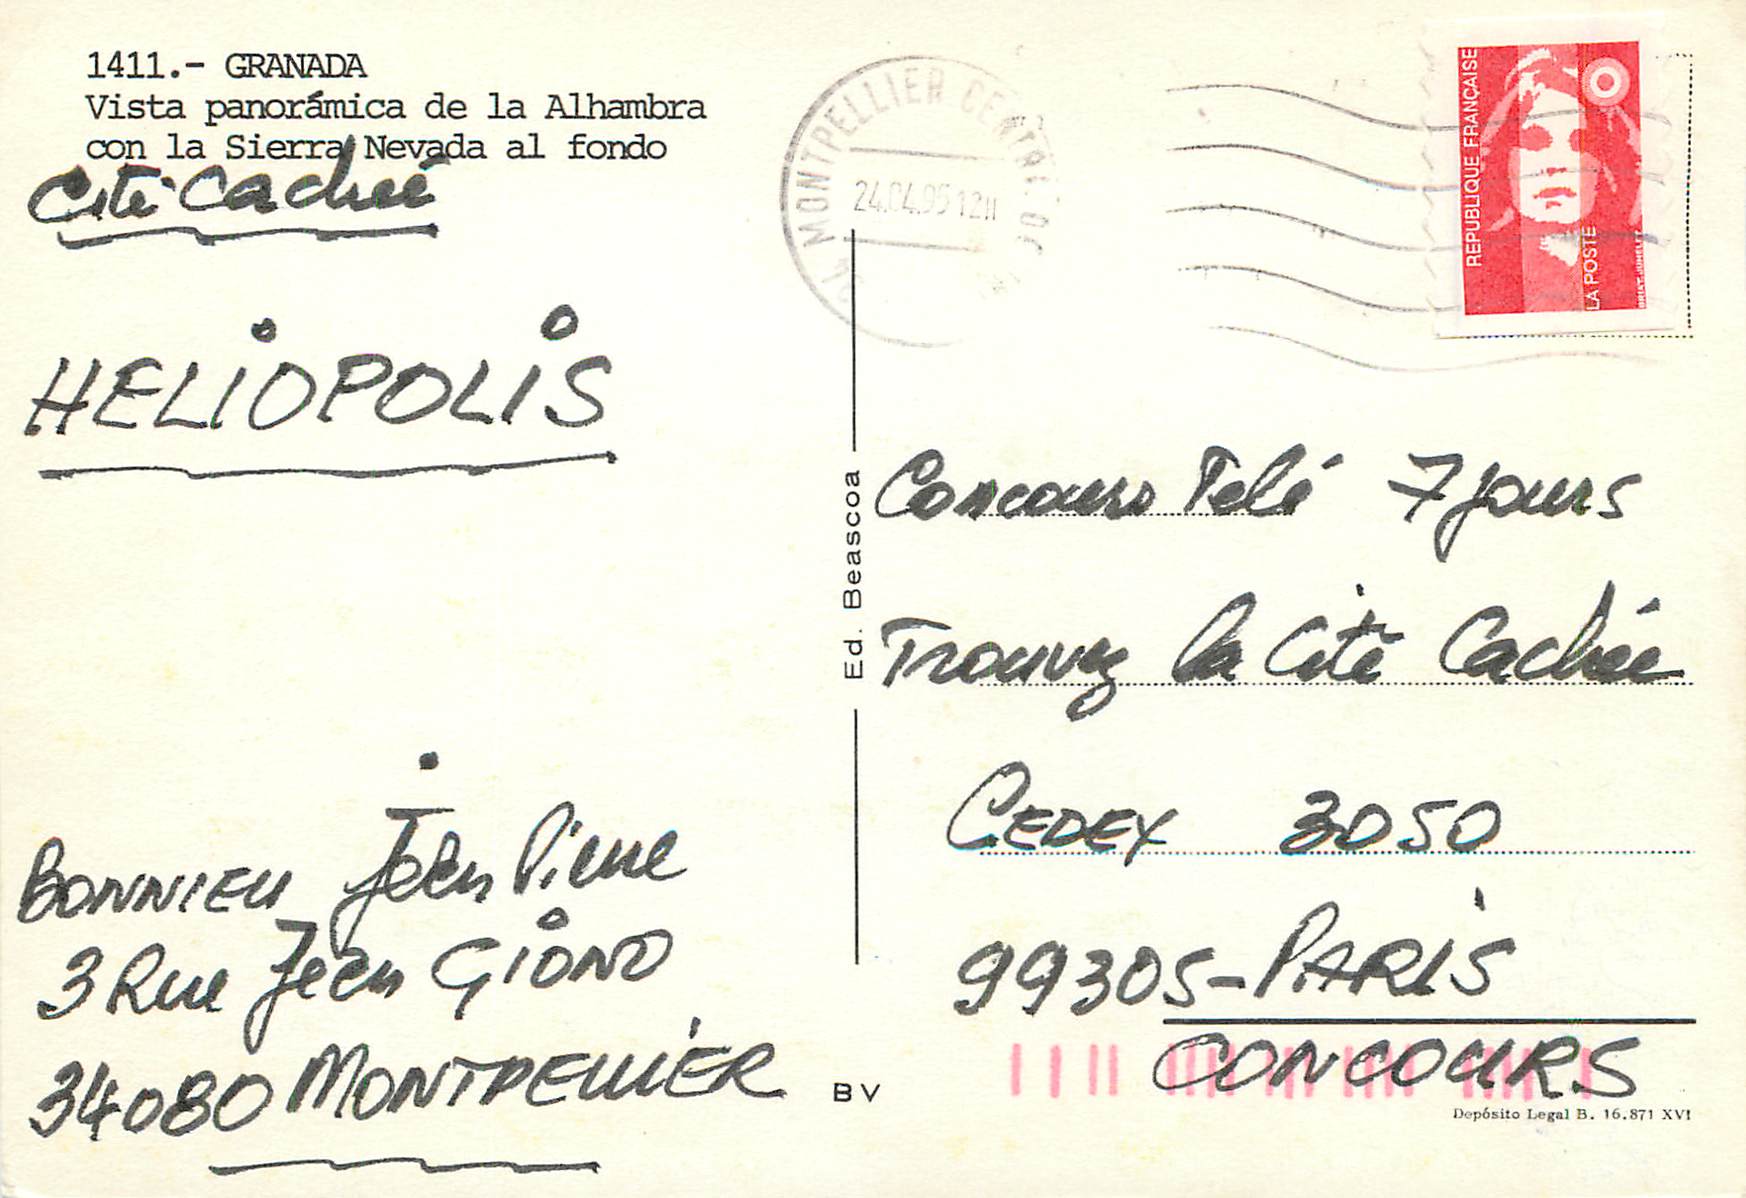 1411.- GRANADA
Vista panorámica de la Alhambra
con la Sierra Nevada al fondo
Cité Cachée
HELIOPOLIS
BONNIEU Jean Pierre
3 Rue Jean GIONO
34080 MONTPELLIER
MONTPELLIER CENTRE
24.04.95 12H
REPUBLIQUE FRANÇAISE
LA POSTE
BRIAT-JUMELET
Ed. Beascoa
Concours Télé 7 jours
Trouvez la Cité Cachée
CEDEX 3050
99305-PARIS
CONCOURS
BV
Depósito Legal B. 16.871 XVI